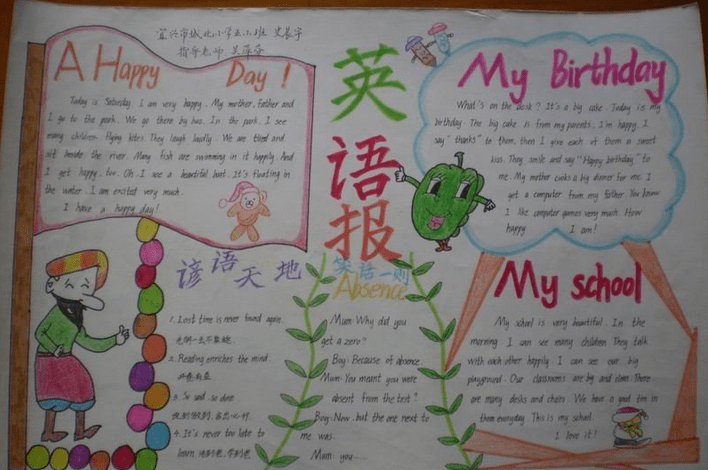 宜兴市城北小学五
指导老师
A Happy Day!
Today is Saturday. I am very happy. My mother, father and
I go to the park. We go there by bus. In the park, I see
many children flying kites. They laugh loudly. We are tired and
sit beside the river. Many fish are swimming in it happily. And
I get happy, too. Oh, I see a beautiful boat. It's floating in
the water. I am excited very much.
I have a happy day!
英语报
My Birthday
What's on the desk? It's a big cake. Today is my
birthday. The big cake is from my parents, I'm happy. I
say "thanks" to them, then I give each of them a sweet
kiss. They smile and say "Happy birthday" to
me. My mother cooks a big dinner for me. I
get a computer from my father. You know
I like computer games very much. How
happy I am!
谚语天地
1. Lost time is never found again.
2. Reading enriches the mind.
开卷有益
3. So said, so done.
说到做到
4. It's never too late to
learn.
笑话一则
Absence
Mum: Why did you
get a zero?
Boy: Because of absence.
Mum: You meant you were
absent from the test?
Boy: Now, but the one next to
me was.
Mum: you....
My school
My school is very beautiful. In the
morning, I can see many children. They talk
with each other happily. I can see our big
playground. Our classrooms are big and clean. There
are many desks and chairs. We have a good time in
them everyday. This is my school.
I love it!